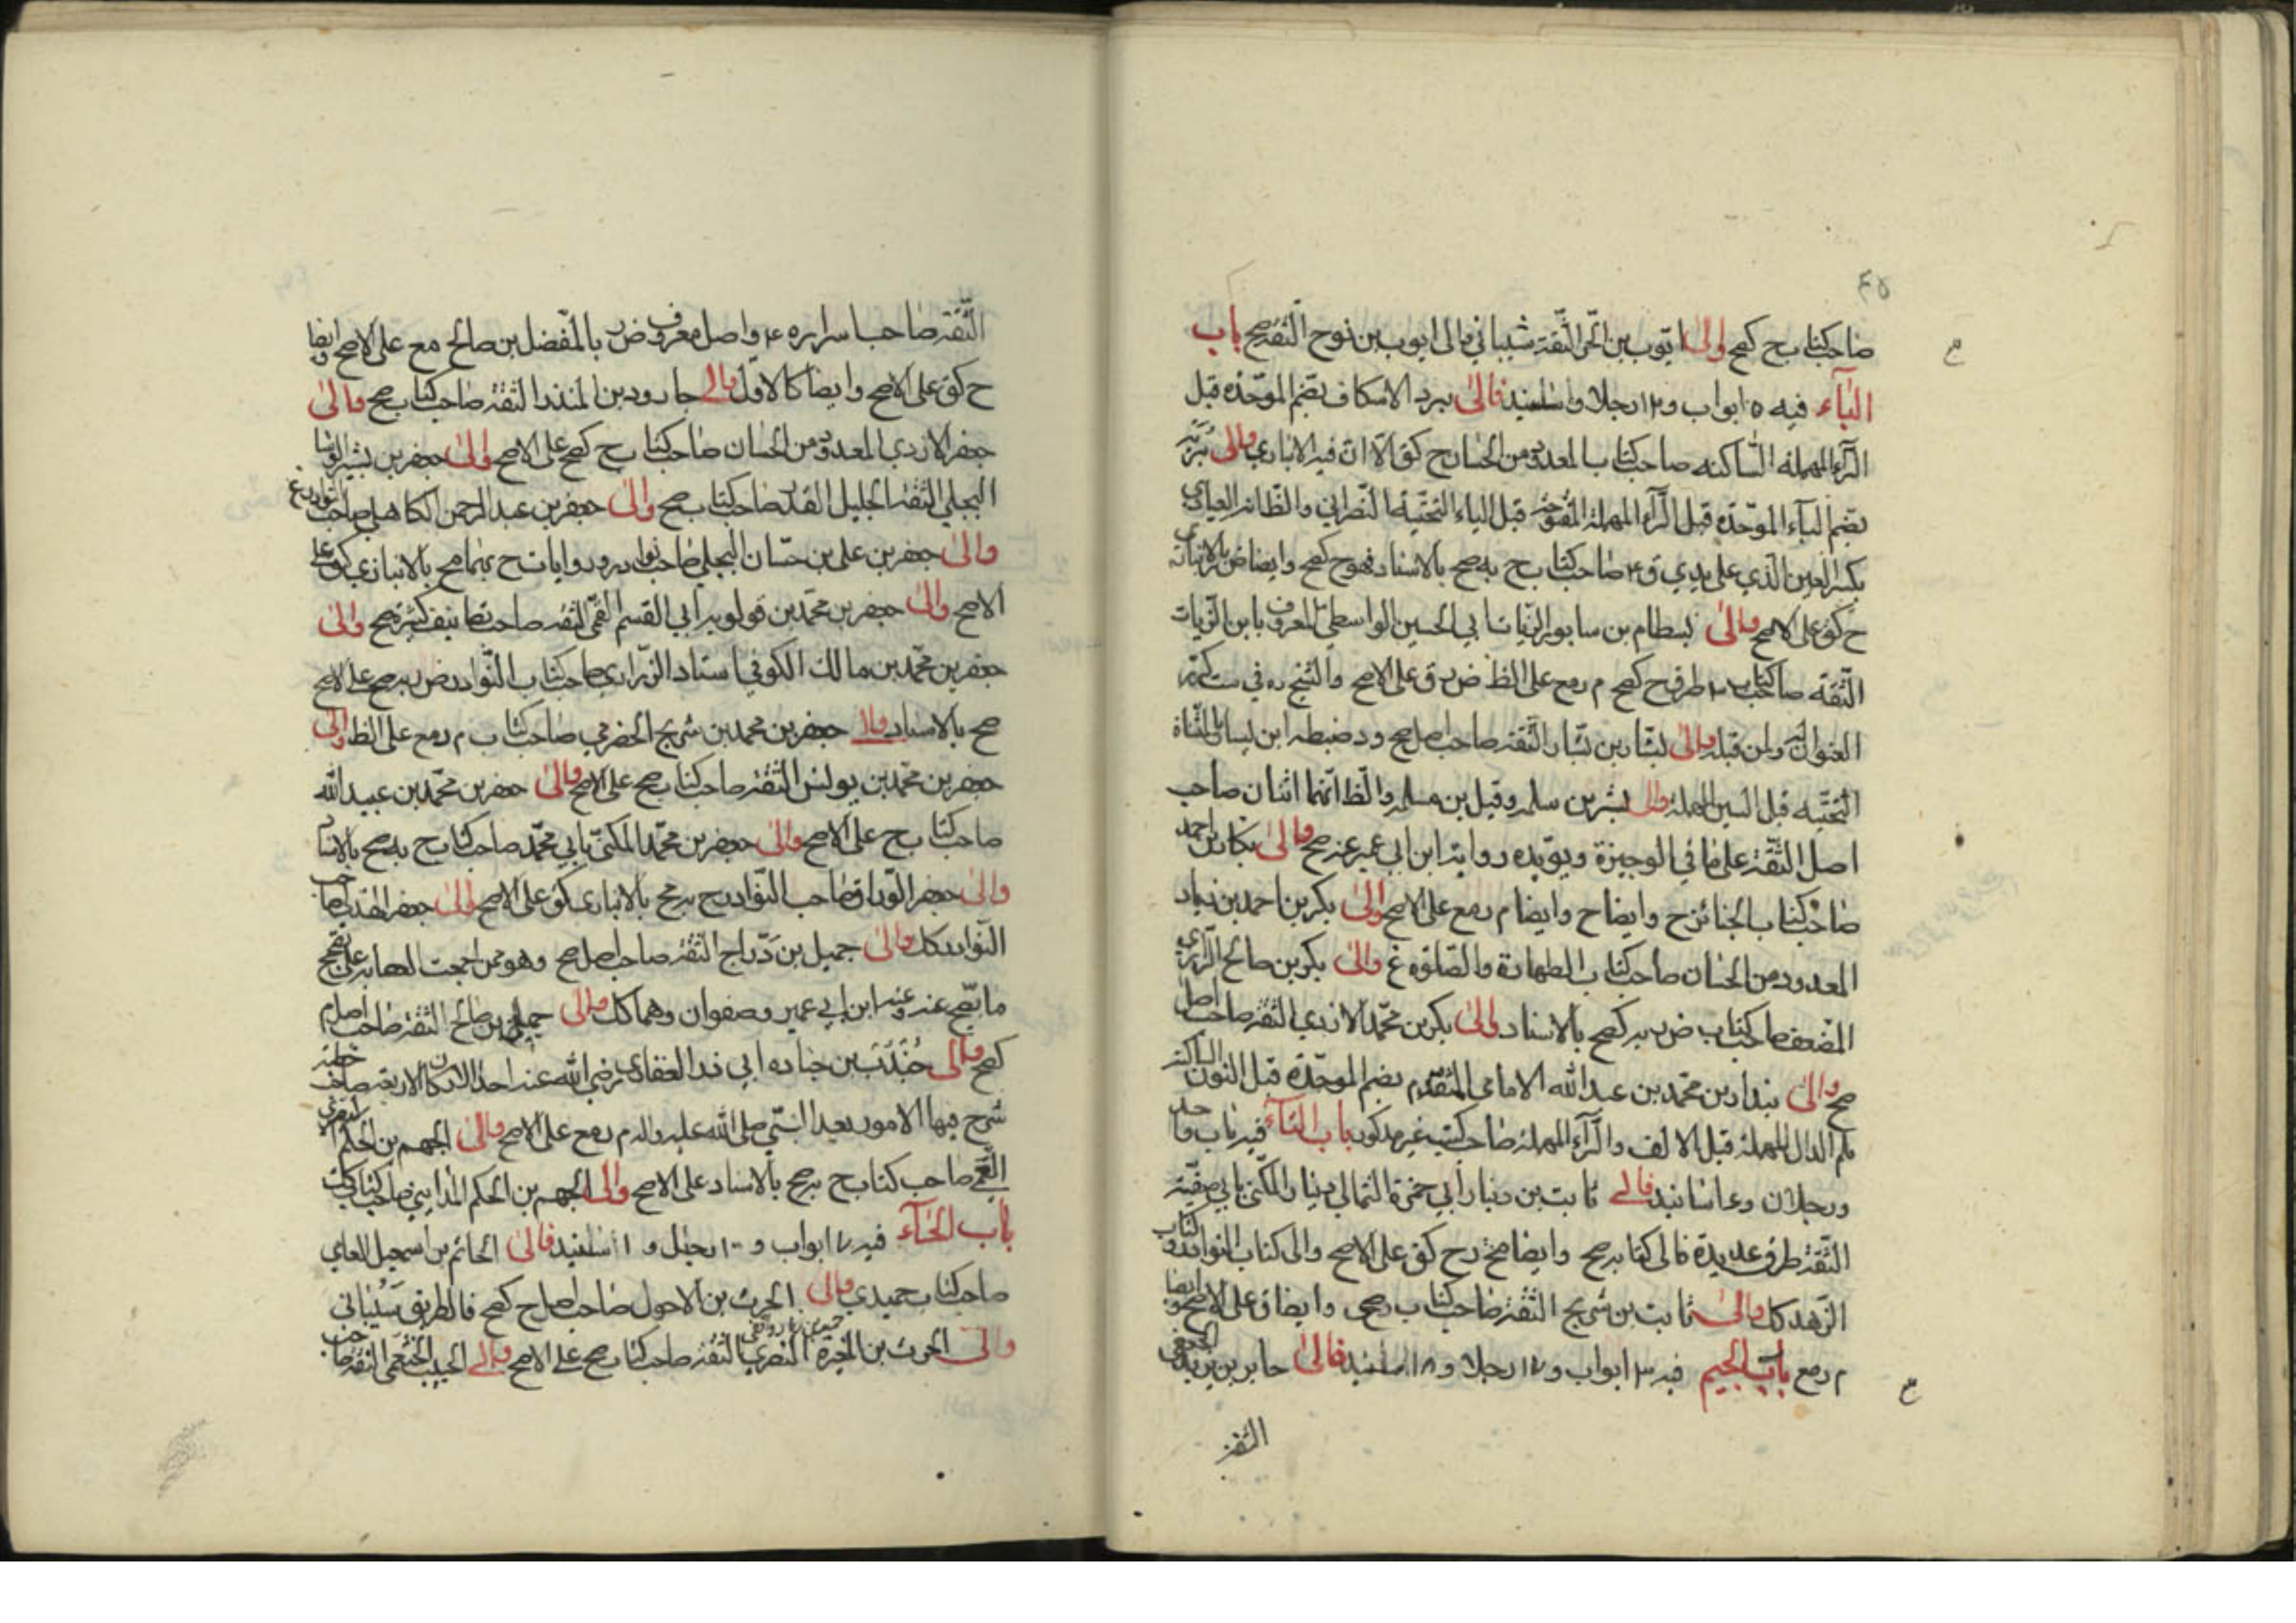 ٤٥
صاحب كتاب ح كصح والى ايوب بن الحر الثقة شيباني والى ايوب بن نوح الثقة صح باب
الباء فيه ٥ ابواب و١٢ رجلا واسانيد فالى برد الاسكاف بضم الموحدة قبل
الراء المهملة الساكنه صاحب كتاب المعدود من الحسان ح كق الا ان فيه الانباري والى بريه
بضم الباء الموحده قبل الراء المهملة المفتوحه قبل الياء التحتية النصراني والظاهر العبادي
بكسر العين الذي على يدي ق ٤ صاحب كتاب ح يه صح بالاسناد فهو ح كصح وايضا ض بالانباري
ح كق على الاصح والى بسطام بن سابور الزيات ابي الحسين الواسطي المعروف بابن الزيات
الثقة صاحب كتاب طرق ح كصح م رمع على الظ ض ر ق على الاصح والشيخ ره في ست كرر
العنوان له ولمن قبله والى بشار بن يسار الثقة صاحب اصل صح ود ضبطه ابن يسار بالمثناة
التحتيه قبل السين المهملة والى بشر بن سلمه وقيل بن مسلمه والظ انهما اثنان صاحب
اصل الثقة على ما في الوجيزة ويؤيده رواية ابن ابي عمير عنه صح والى بكار بن احمد
صاحب كتاب الجنائز ح وايضا ح وايضا م رمع على الاصح والى بكر بن احمد بن زياد
المعدود من الحسان صاحب كتاب الطهارة والصلوة غ والى بكر بن صالح الرازي
المضعف صاحب كتاب ض ر يه كصح بالاسناد والى بكر بن محمد الازدي الثقة صاحب اصل
صح والى بندار بن محمد بن عبد الله الامامي المتقدم بضم الموحدة قبل النون الساكنة
ثم الدال المهملة قبل الالف والراء المهملة صاحب كتب غير مذكور باب الثاء فيه باب واحد
ورجلان وعاسانيد فالى ثابت بن دينار ابي حمزة الثمالي دينار المكنى بابي صفية
الثقة طرق عديدة فالى كتابه صح وايضا مخ رح كق على الاصح والى كتاب النوادر وكتاب
الزهد كك والى ثابت بن شريح الثقة صاحب كتاب رصحى وايضا ق على الاصح وايضا
م رمع باب الجيم فيه ٣ ابواب و١٧ رجلا و١٨ اسانيد فالى جابر بن يزيد الجعفي
الثقة
الثقة صاحب اسراره ٤ واصل معروف ض ر بالمفضل بن صالح مع على الاصح وايضا
ح كق على الاصح وايضا كالاول والى جارود بن المنذر الثقة صاحب كتاب صح والى
جعفر الازدي المعدود من الحسان صاحب كتاب ح كصح على الاصح والى جعفر بن بشير الوشا
البجلي الثقة الجليل القدر صاحب كتاب صح والى جعفر بن عبد الرحمن الكاهلي صاحب نوادر غ
والى جعفر بن علي بن حسان البجلي صاحب نوادر وروايات ح بهما صح بالانباري كق على
الاصح والى جعفر بن محمد بن قولويه ابي القسم القمي الثقه صاحب تصانيف كثيرة صح والى
جعفر بن محمد بن مالك الكوفي استاد الزراري صاحب كتاب النوادر ض ر يه صح على الاصح
صح بالاسناد والى جعفر بن محمد بن شريح الحضرمي صاحب كتاب م رمع على الظ والى
جعفر بن محمد بن يونس الثقة صاحب كتاب صح على الاصح والى جعفر بن محمد بن عبيد الله
صاحب كتاب ح على الاصح والى جعفر بن محمد المكنى بابي محمد صاحب كتاب ح يه صح بالاسناد
والى جعفر الوراق صاحب النوادر ح يه صح بالانباري كق على الاصح والى جعفر الهذلي صاحب
النوادر كك والى جميل بن دراج الثقة صاحب اصل صح وهو ممن اجمعت العصابه على تصحيح
ما يصح عنه وعنه ابن ابي عمير وصفوان وهما كك والى جميل بن صالح الثقة صاحب اصل م
كصح والى جندب بن جناده ابي ذر الغفاري رضي الله عنه احد الاركان الاربعه صاحب خطبة
شرح فيها الامور بعد النبي صلى الله عليه واله م رمع على الاصح والى الجهم بن الحكم
القمي صاحب كتاب ح يه صح بالاسناد على الاصح والى الجهم بن الحكم المدايني صاحب كتاب كك
باب الحاء فيه ١٧ ابواب و ١٠٠ رجل و ١ اسانيد فالى الحاتم بن اسمعيل العامي
صاحب كتاب حميدي والى الحرث بن الاحول صاحب اصل ح كصح فالطريق
والى الحرث بن المغيرة النصري الثقة صاحب كتاب صح على الاصح والى الحبيب الخثعمي الثقة صاحب